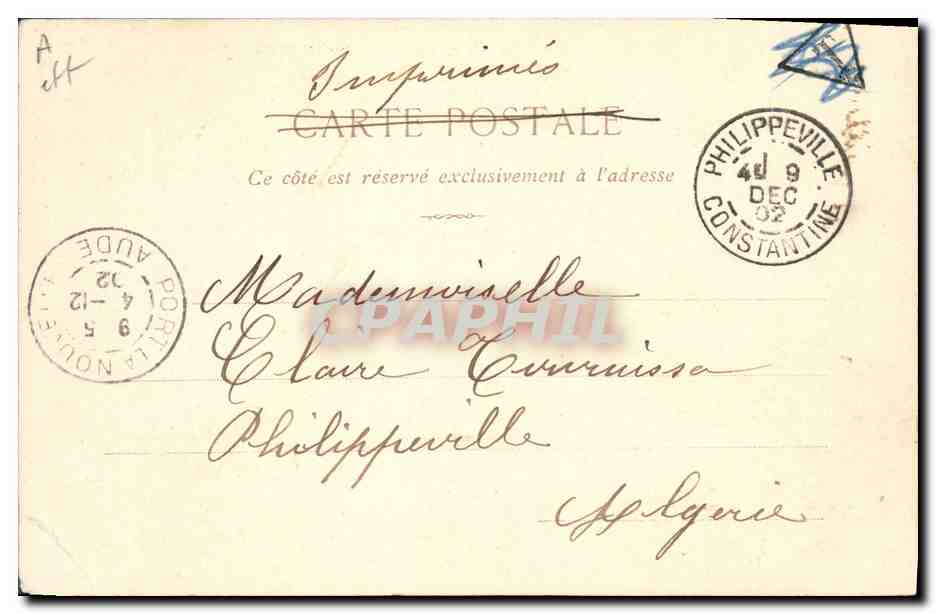 A
eff
Imprimés
CARTE POSTALE
Ce côté est réservé exclusivement à l'adresse
PHILIPPEVILLE
9
DEC
02
CONSTANTINE
PORT LA NOUVELLE
9 5
4 -12
02
AUDE
Mademoiselle
Claire Tournissa
CPAPHIL
Philippeville
Algérie